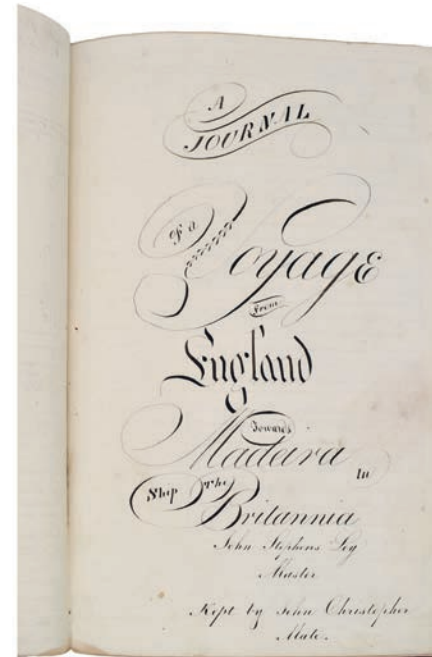 A
JOURNAL
Of a
Voyage
From
England
Towards
Madeira
In
Ship The
Britannia
John Stephens
Master
Kept by John Christopher
Mate.